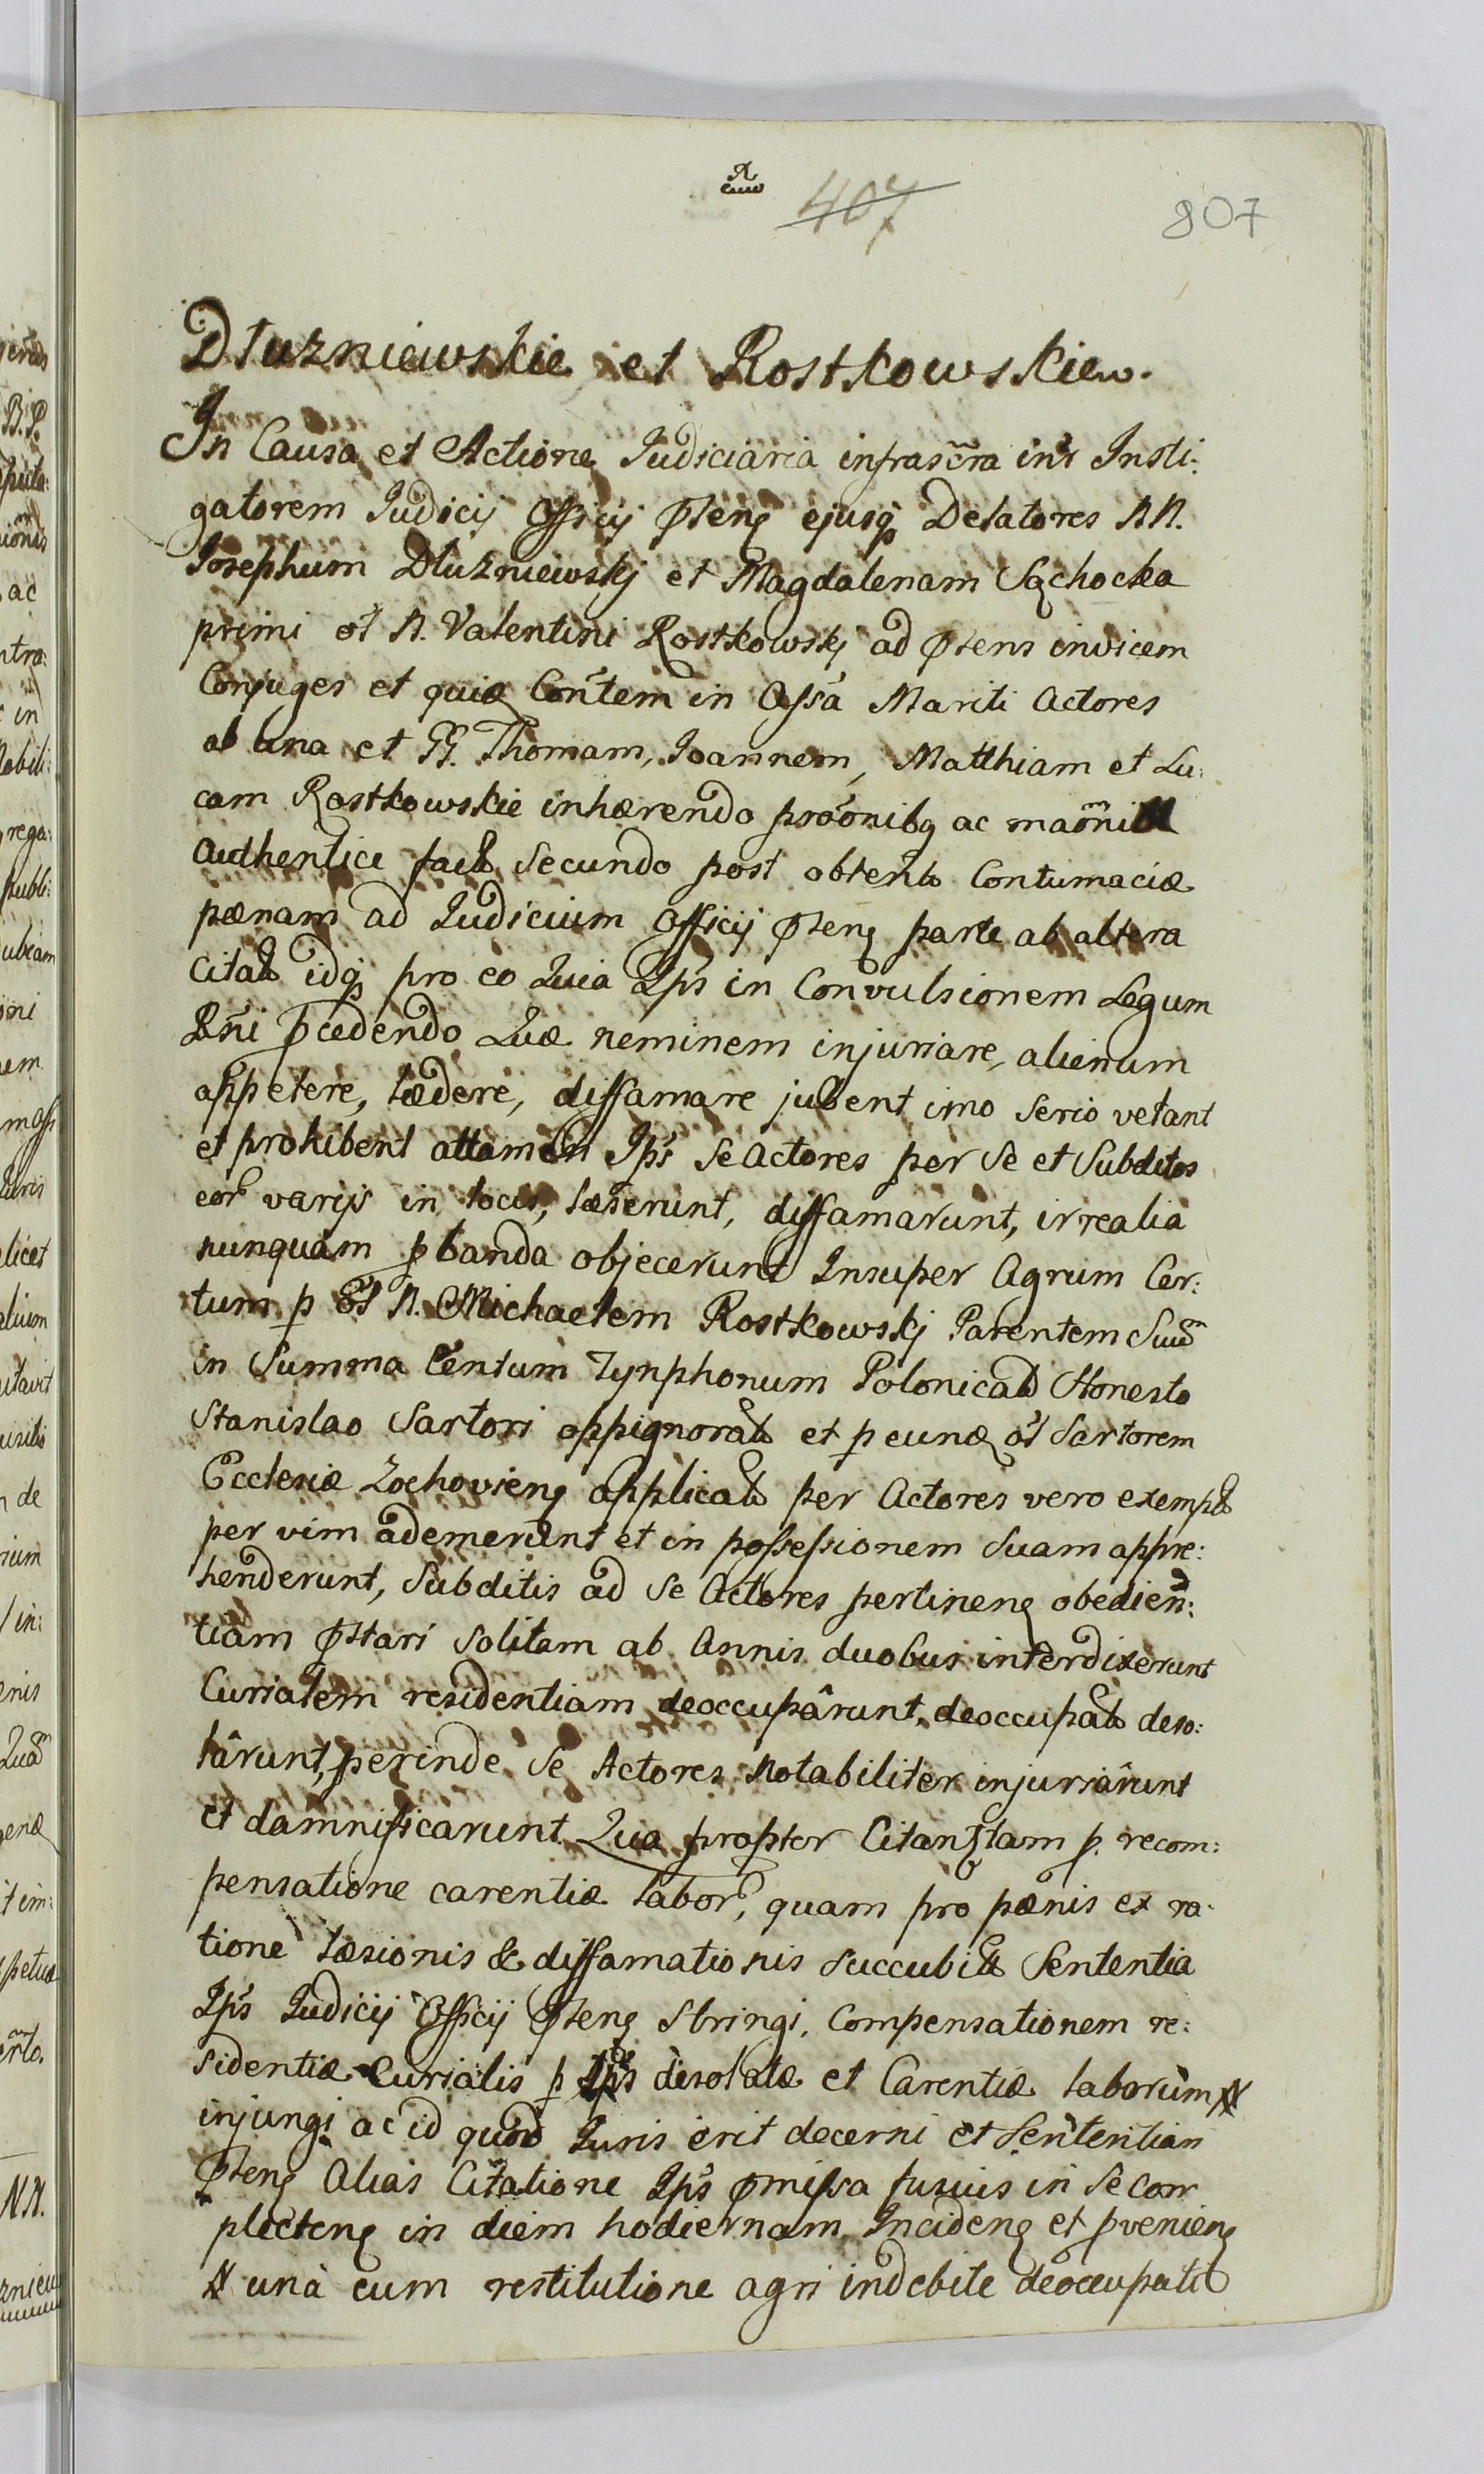 407 807
Dłuzniewskie et Rostkowskie
In Causa et Actione Judiciaria infrascra intr Insti:
gatorem Judicij Officij Pñteng ejusq Delatores NN.
Josephum Dłuzniewskj et Magdalenam Sąchocka
primi ot N. Valentini Rostkowskj ad pñtens invicem
Conjuges et quidẽ Con'tem in Assã Mariti Actores
ab una et GG. Thomam, Joannem, Matthiam et Lu:
cam Rostkowskie inhærendo pro'onibq ac
Authentice fact Secundo post obtent Contumaciæ
pœnam ad Judicium Officij pñteng parte ab altera
Citat idq pro eo Quia Ip's in Convulsionem Legum
Rñi pcedendo Quæ neminem injuriare, alienum
appetere, lædere, diffamare jubent imo serio vetant
et prohibent attamen Ip's se Actores per se et Subditos
eor varijs in locis, læserunt, diffamarunt, irrealia
nunquam pbanda objecerunt Insuper Agrum Cer:
tum p ot N. Michaelem Rostkowskj Parentem Suũ
in Summa Centum Tynphonum Polonicat Honesto
Stanislao Sartori oppignorat et p eundẽ ot Sartorem
Ecclesiæ Zochovieng applicat per Actores vero exempt
per vim ademerunt et in possessionem suam appre:
henderunt, Subditis ad se Actores pertineng obedien:
tiam pstari solitam ab Annis duobus interdixerunt
Curialem residentiam deoccupârunt, deoccupat deso:
lârunt, perinde se Actores Notabiliter injuriârunt
et damnificarunt Qua propter Citang tam p. recom:
pensatione carentiæ labor, quam pro pœnis ex ra:
tione læsionis & diffamationis succubit Sententia
Ip's Judicij Officij Pñteng Stringi, Compensationem re:
sidentiæ Curialis p Ip's desolatæ et Carentiæ laborum
injungi ac id quod Juris erit decerni et Sententian
Pñteng Alias Citatione Ip's pmissa fusius in se Com
plecteng in diem hodiernam Incideng et pvenieng
una cum restitutione agri indebite deoccupati